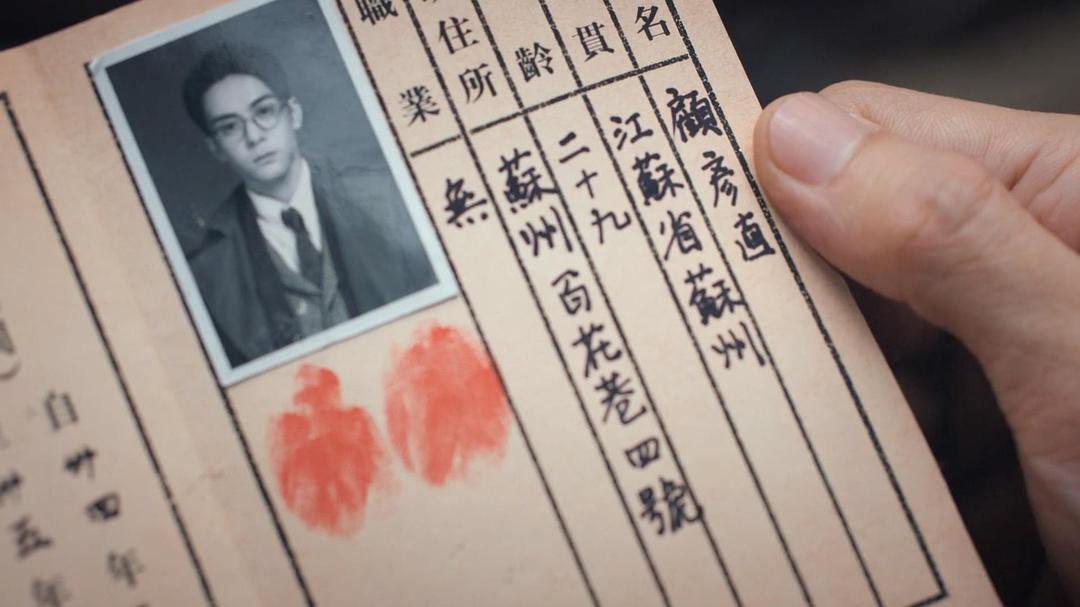 名 顧彥直
貫 江蘇省蘇州
齡 二十九
住所 蘇州百花巷四號
職業 無
自卅四年
卅五年